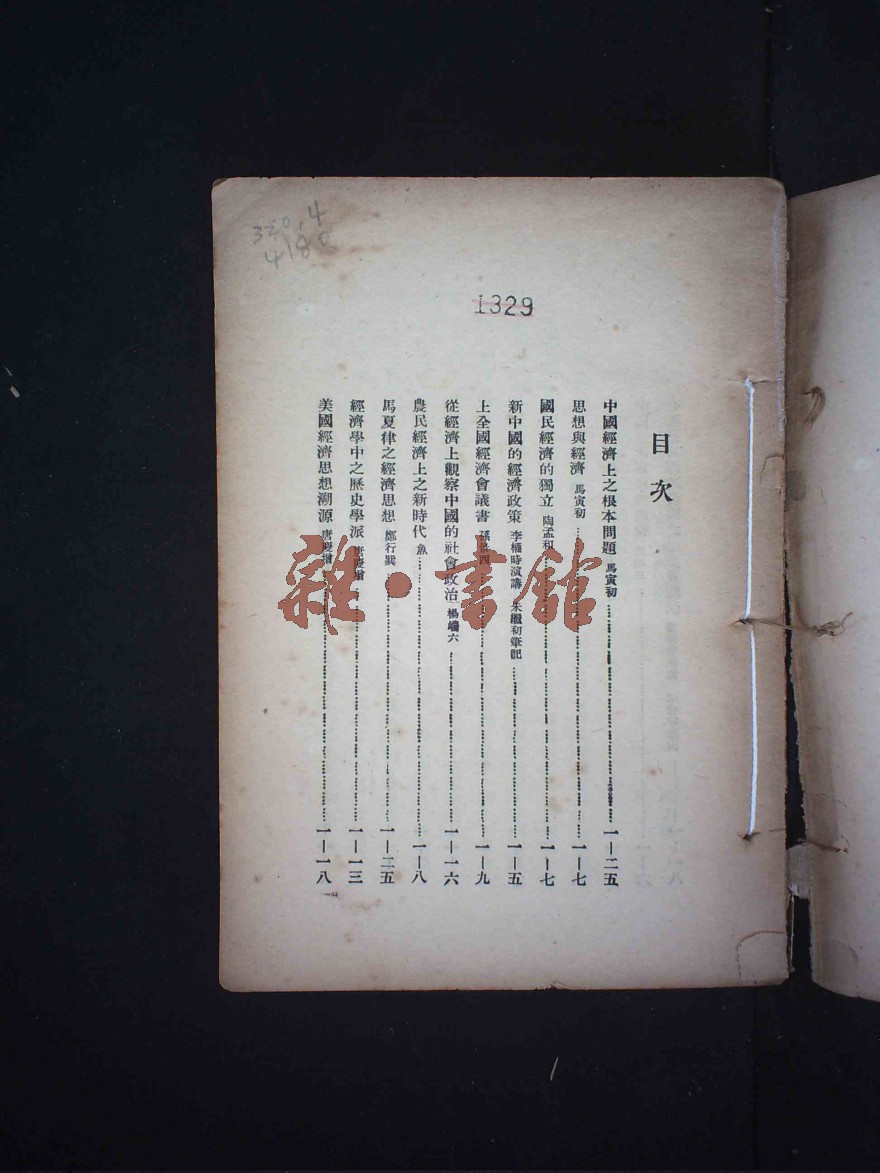 320.4
4180
1329
目次
中國經濟上之根本問題 馬寅初 一—二五
思想與經濟 馬寅初 一—七
國民經濟的獨立 陶孟和 一—七
新中國的經濟政策 李權時演講 朱繼初筆記 一—五
上全國經濟會議書 一—九
從經濟上觀察中國的社會政治 楊端六 一—一六
農民經濟上之新時代 魚 一—八
馬夏律之經濟思想 鄭行巽 一—二五
經濟學中之歷史學派 唐慶增 一—一三
美國經濟思想溯源 唐慶增 一—一八
雜·書館